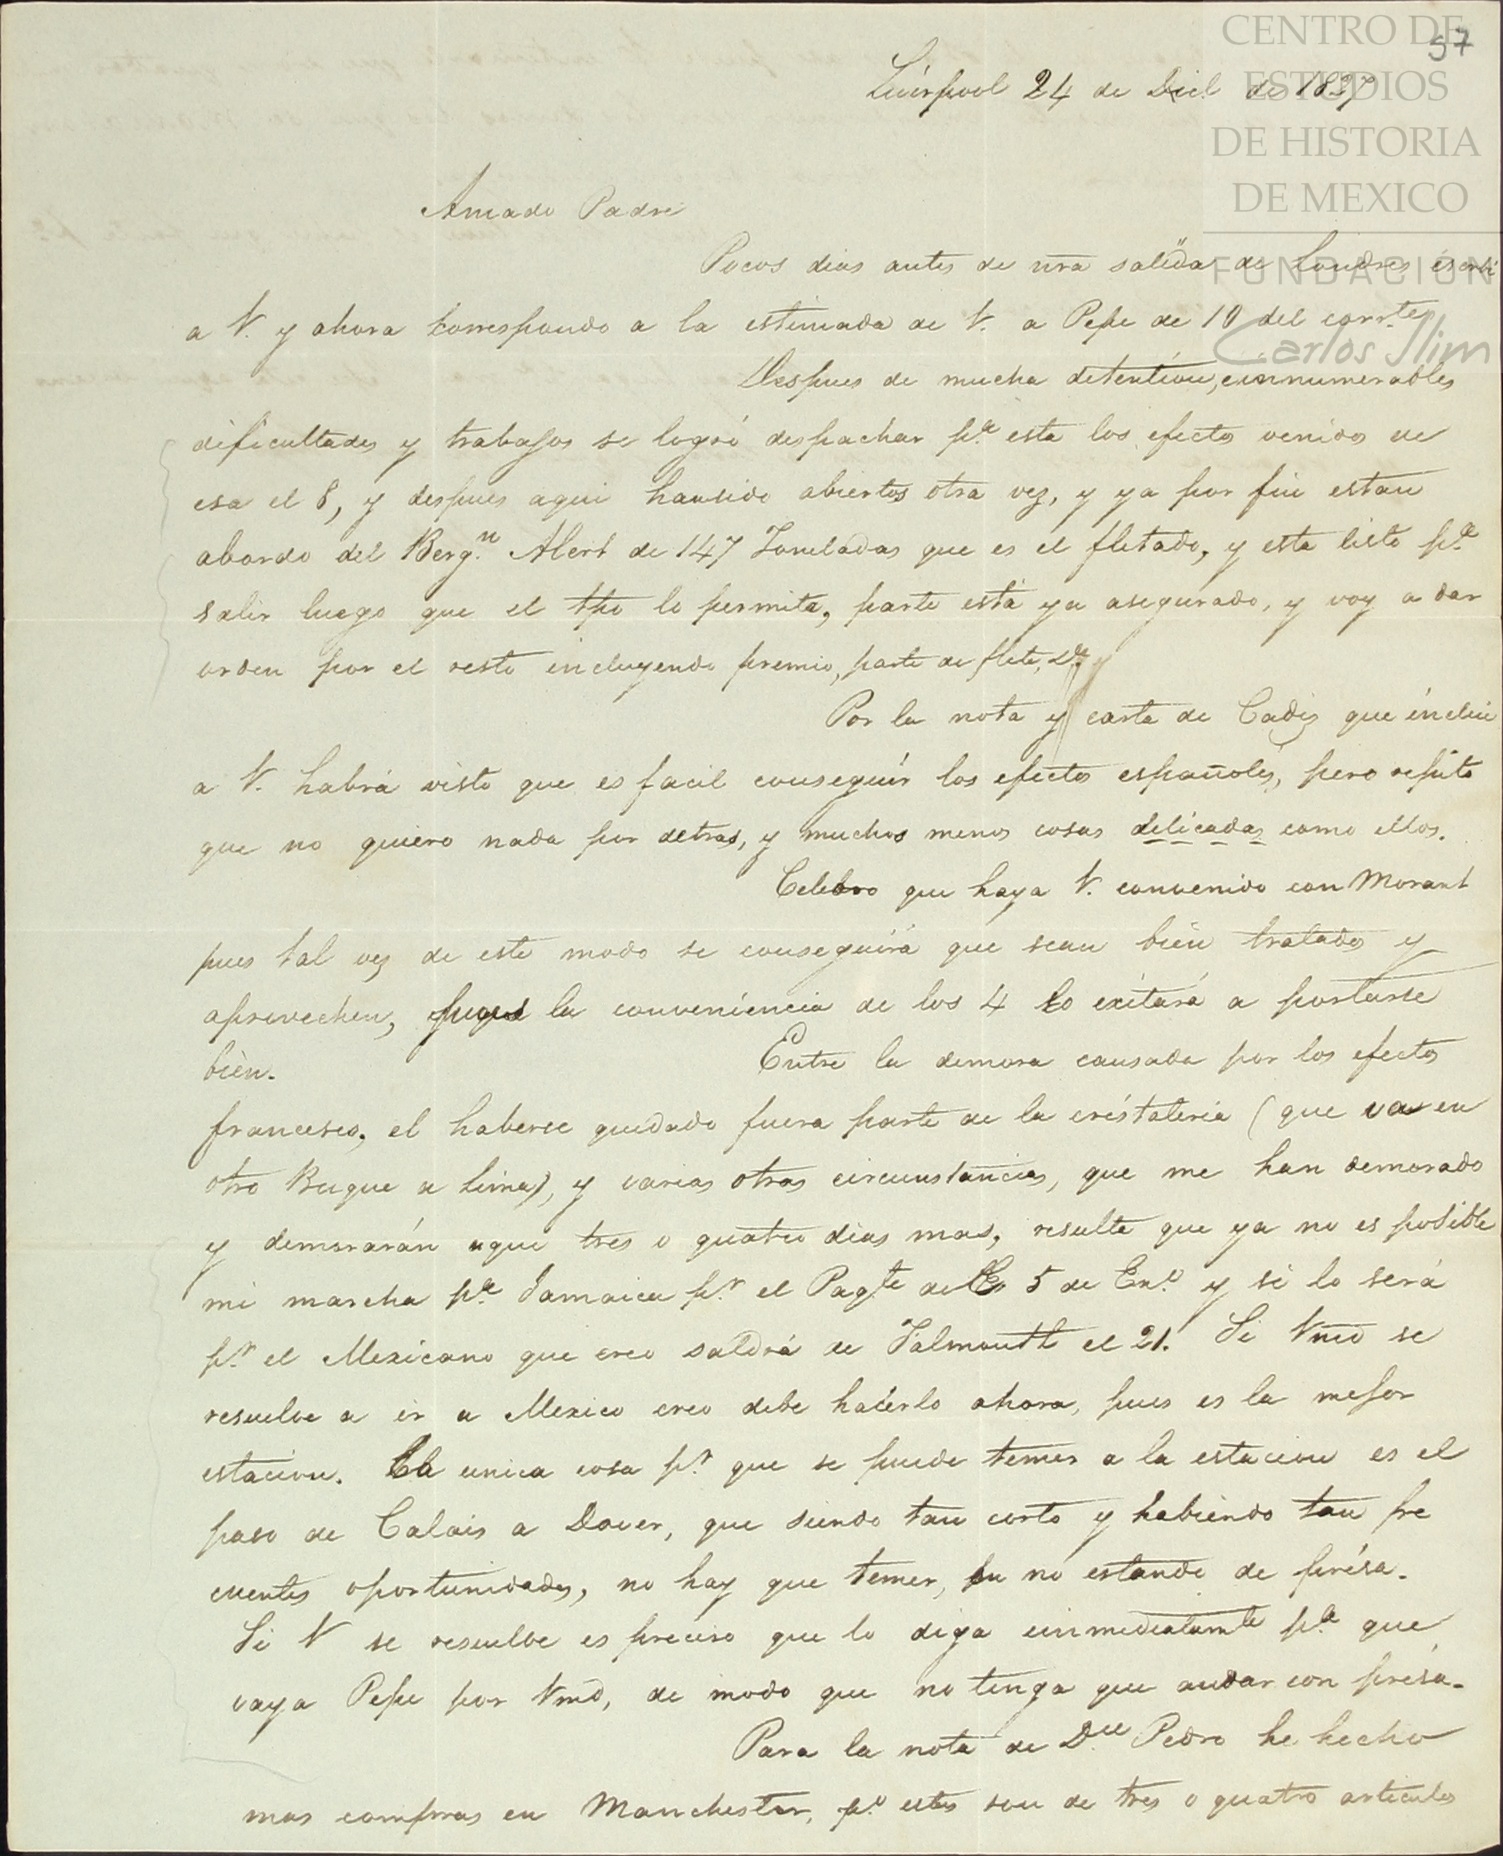 CENTRO DE
ESTUDIOS
DE HISTORIA
DE MEXICO
FUNDACIÓN
Carlos Slim
57
Liverpool 24 de Dicl de 1827
Amado Padre
Pocos dias antes de nra salida de Londres escribi
a V. y ahora correspondo a la estimada de V. a Pepe de 10 del corrte
Despues de mucha detention, e innumerables
dificultades y trabajos se logró despachar pa esta los efectos venidos de
esa el 8, y despues aqui han sido abiertos otra vez, y ya por fin estan
abordo del Bergn Alert de 147 Toneladas que es el fletado, y esta listo pa
salir luego que el tpo lo permita, parte está ya asegurado, y voy a dar
orden por el resto incluyendo premio, parte de flete, &a
Por la nota y carta de Cadiz que inclui
a V. habrá visto que es facil conseguir los efectos españoles, pero repito
que no quiero nada por detras, y muchos menos cosas delicadas como ellos.
Celebro que haya V. convenido con Morant
pues tal vez de este modo se conseguirá que sean bien tratados y
aprovechen, pues la conveniencia de los 4 lo exitará a portarse
bien. Entre la demora causada por los efectos
franceses, el haberse quedado fuera parte de la cristaleria (que va en
otro Buque a Lima), y varias otras circunstancias, que me han demorado
y demorarán aqui tres o quatro dias mas, resulta que ya no es posible
mi marcha pa Jamaica pr el Pagte del 5 de Eno y si lo será
pr el Mexicano que creo saldrá de Falmouth el 21. Si Vmd se
resuelve a ir a Mexico creo debe hacerlo ahora, pues es la mejor
estacion. La unica cosa pr que se puede temer a la estacion es el
paso de Calais a Dover, que siendo tan corto y habiendo tan fre
cuentes oportunidades, no hay que temer, no estando de prisa.
Si V se resuelve es preciso que lo diga inmediatamte pa que
vaya Pepe por Vmd, de modo que no tenga que andar con prisa.
Para la nota de Dn Pedro he hecho
mas compras en Manchester, po estas son de tres o quatro articulos